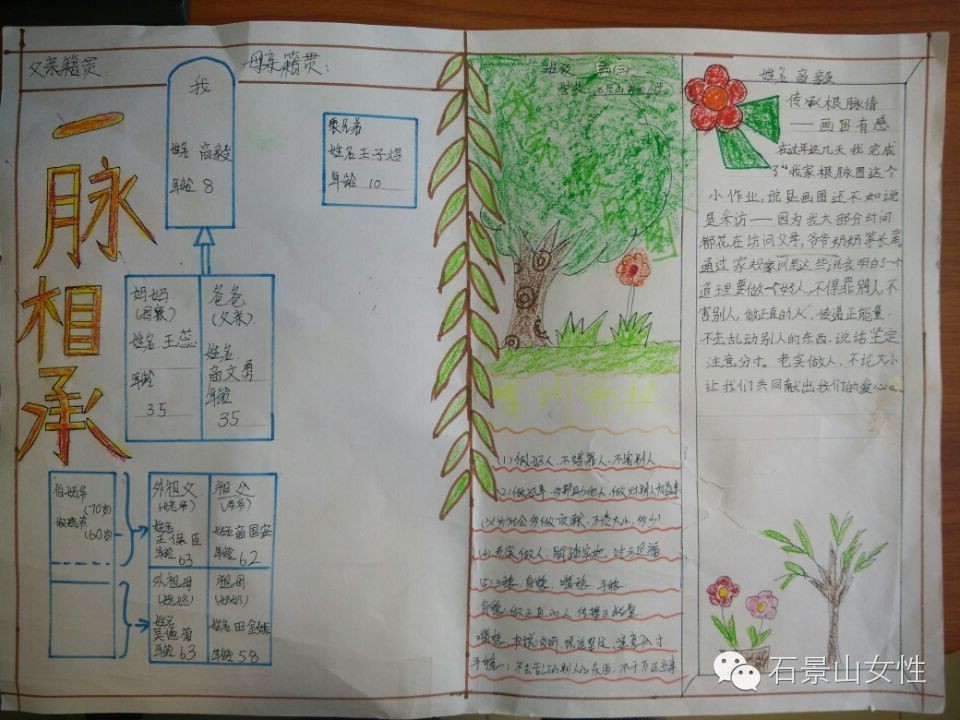 父亲籍贯:
母亲籍贯:
一脉相承
我
姓名 商毅
年龄 8
表兄弟
姓名 王子煜
年龄 10
妈妈
(母亲)
姓名 王蕊
年龄
35
爸爸
(父亲)
姓名
商文勇
年龄
35
(70岁)
(60岁)
外祖父
(姥爷)
姓名
王保臣
年龄 63
祖父
(爷爷)
姓名 商国安
年龄 62
外祖母
(姥姥)
姓名
年龄 63
祖母
(奶奶)
姓名 田
年龄 58
班级 三(二)
学校 石景山
(1) 做好人、不得罪人、不害别人
(4) 老实做人、脚踏实地
(5) 身稳、嘴稳、手稳
身稳:做正直的人、传播正能量
嘴稳 说话坚定、注意分寸
手稳:不去乱动别人的东西、不干不正当事
姓名 商毅
传承根脉情
——画图有感
在过年这几天我完成
了“我家根脉图这个
小作业,说是画图还不如说
是采访——因为我大部分时间
都花在访问父母,爷爷奶奶等长辈
通过家规家训里这些说我明白了一个
道理要做一个好人,不得罪别人,不
害别人,做正直的人、传递正能量.
不去乱动别人的东西,说话坚定
注意分寸。老实做人,不论大小
让我们共同献出我们的爱心。
石景山女性